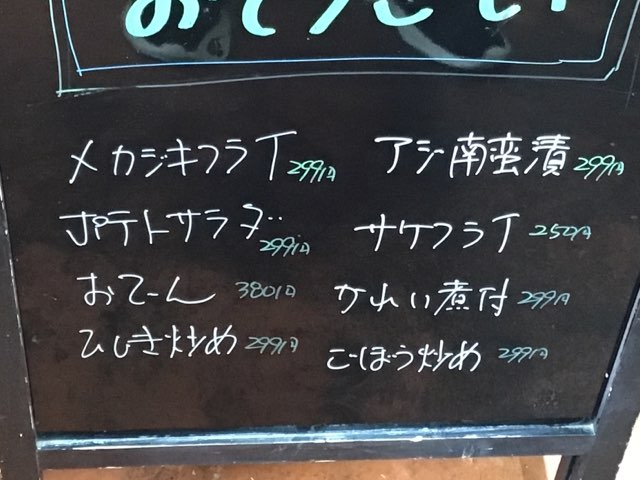 メカジキフライ 299円
アジ南蛮漬 299円
ポテトサラダ 299円
サケフライ 250円
おでん 380円
かれい煮付 299円
ひじき炒め 299円
ごぼう炒め 299円